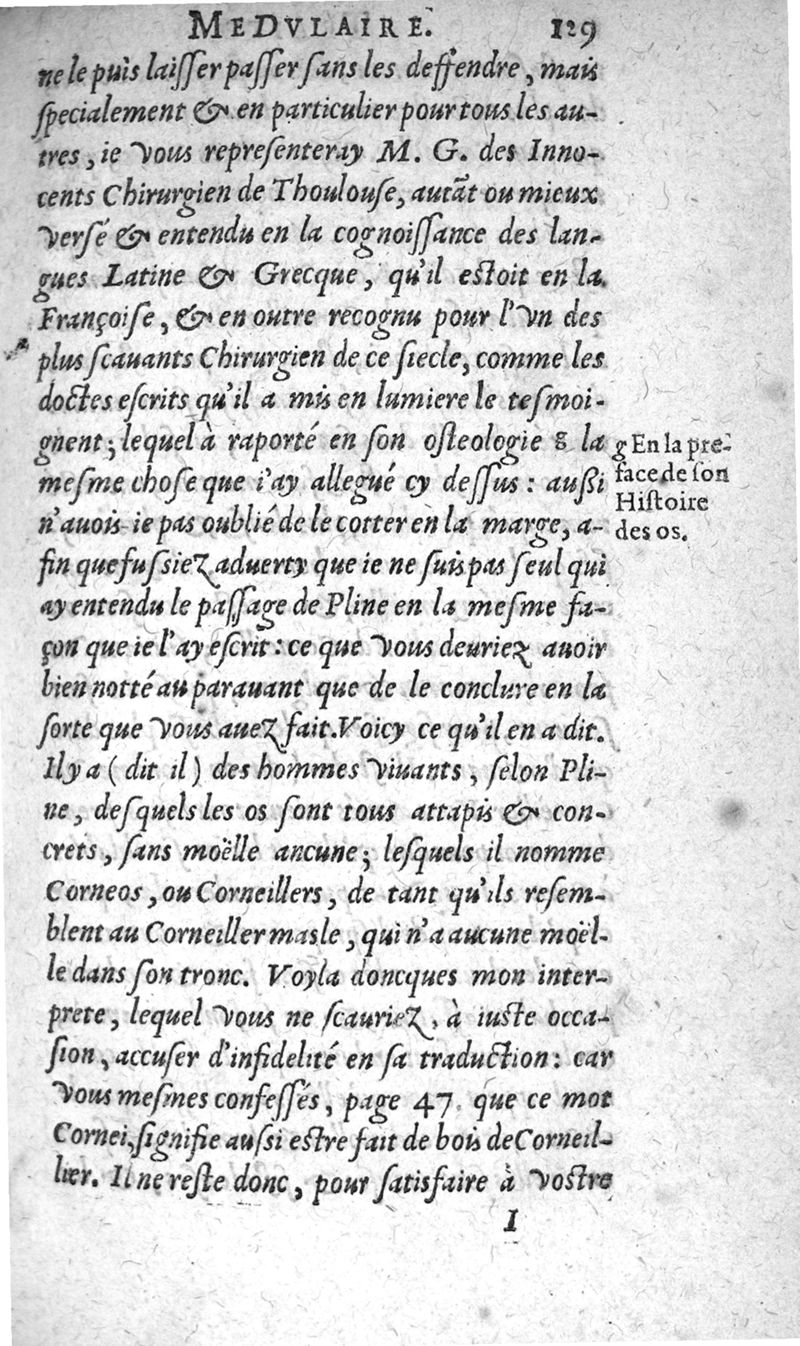 MEDVLAIRE. 129
ne le puis laiſſer paſſer ſans les deffendre, mais
ſpecialement & en particulier pour tous les au-
tres, ie vous repreſenteray M. G. des Inno-
cents Chirurgien de Thoulouſe, autãt ou mieux
verſé & entendu en la cognoiſſance des lan-
gues Latine & Grecque, qu'il eſtoit en la
Françoiſe, & en outre recognu pour l'vn des
plus ſcauants Chirurgien de ce ſiecle, comme les
doctes eſcrits qu'il a mis en lumiere le teſmoi-
gnent; lequel à raporté en ſon oſteologie g la
meſme choſe que i'ay allegué cy deſſus: auſſi
n'auois-ie pas oublié de le cotter en la marge, a-
fin que fuſsiez aduerty que ie ne ſuis pas ſeul qui
ay entendu le paſſage de Pline en la meſme fa-
çon que ie l'ay eſcrit: ce que vous deuriez auoir
bien notté au parauant que de le conclure en la
ſorte que vous auez fait. Voicy ce qu'il en a dit.
Il y a ( dit il ) des hommes viuants, ſelon Pli-
ne, deſquels les os ſont tous attapis & con-
crets, ſans moëlle ancune; leſquels il nomme
Corneos, ou Corneillers, de tant qu'ils reſem-
blent au Corneiller masle, qui n'a aucune moël-
le dans ſon tronc. Voyla doncques mon inter-
prete, lequel vous ne ſcauriez, à iuſte occa-
ſion, accuſer d'infidelité en ſa traduction: car
vous meſmes confeſſés, page 47. que ce mot
Cornei, ſignifie auſsi eſtre fait de bois de Corneil-
lier. Il ne reſte donc, pour ſatisfaire à voſtre
I
g En la pre-
face de ſon
Hiſtoire
des os.